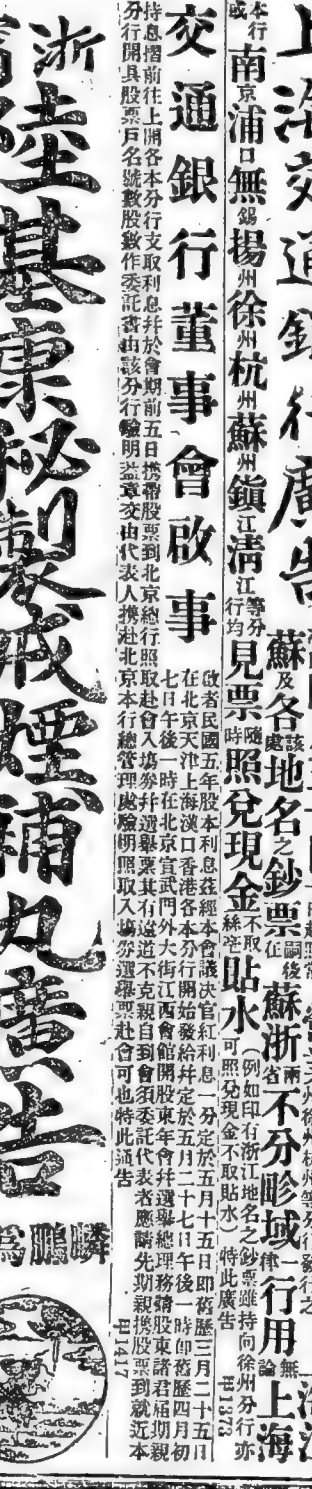 上海交通銀行廣告
蘇及各該處地名之鈔票嗣後在蘇浙兩省不分畛域一律行用無論上海
本行或南京浦口無錫揚州徐州杭州蘇州鎮江清江等分行均見票隨時照兌現金不取絲毫貼水(例如印有浙江地名之鈔票雖持向徐州分行亦可照兌現金不取貼水)特此廣告
甲1373
交通銀行董事會啟事
啟者民國五年股本利息茲經本會議決官紅利息一分定於五月十五日即舊歷三月二十五日
在北京天津上海漢口香港各本分行開始發給并定於五月二十七日午後一時即舊歷四月初
七日午後一時在北京宣武門外大街江西會館開股東年會并選舉總理務請股東諸君屆期親
持息摺前往上開各本分行支取利息并於會期前五日携帶股票到北京總行照取赴會入場券并選舉票其有遠道不克親自到會須委託代表者應請先期親携股票到就近本
分行開具股票戶名號數股數作委託書由該分行驗明蓋章交由代表人携赴北京本行總管理處驗明照取入場券選舉票赴會可也特此通告
甲1417
浙陸基東秘製戒煙補丸廣告
鵬